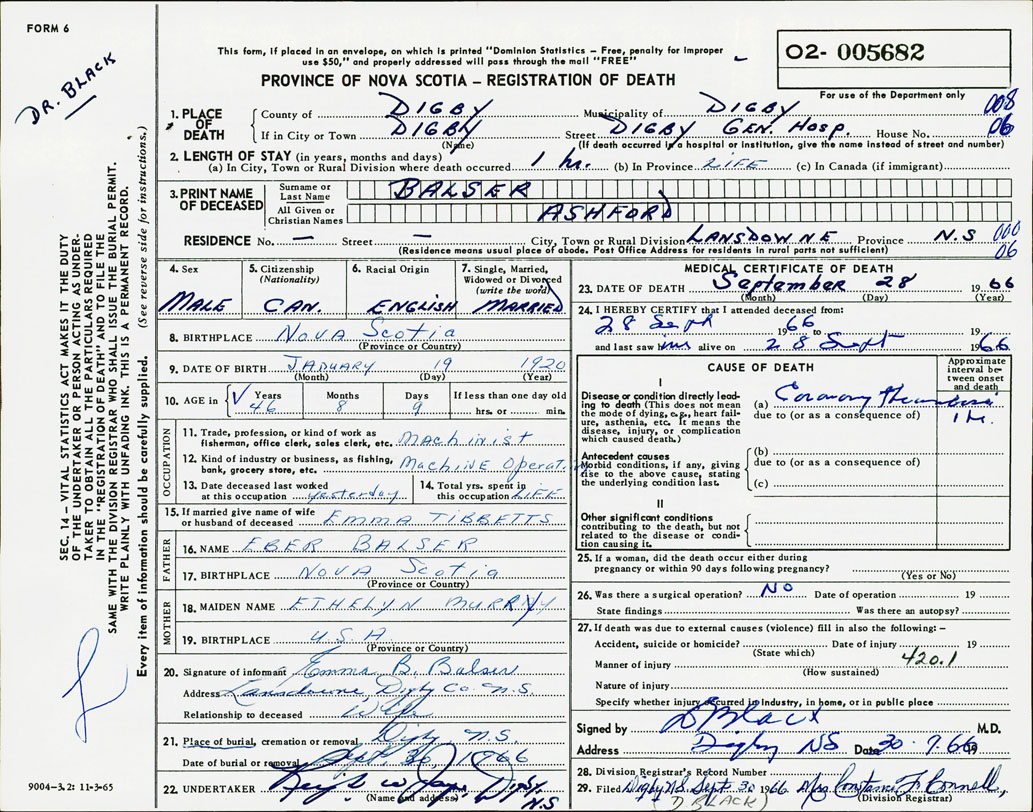 FORM 6
DR. BLACK
This form, if placed in an envelope, on which is printed "Dominion Statistics – Free, penalty for improper
use $50," and properly addressed will pass through the mail "FREE"
PROVINCE OF NOVA SCOTIA – REGISTRATION OF DEATH
02- 005682
For use of the Department only
1. PLACE OF DEATH County of DIGBY Municipality of DIGBY 008
If in City or Town DIGBY Street DIGBY GEN. HOSP. House No. 06
(Name) (If death occurred in a hospital or institution, give the name instead of street and number)
2. LENGTH OF STAY (in years, months and days)
(a) In City, Town or Rural Division where death occurred 1 hr. (b) In Province LIFE (c) In Canada (if immigrant)
3. PRINT NAME OF DECEASED Surname or Last Name BALSER
All Given or Christian Names ASHFORD
RESIDENCE No. — Street — City, Town or Rural Division LANSDOWNE Province N.S 000
(Residence means usual place of abode. Post Office Address for residents in rural parts not sufficient) 06
4. Sex MALE
5. Citizenship (Nationality) CAN.
6. Racial Origin ENGLISH
7. Single, Married, Widowed or Divorced (write the word) MARRIED
8. BIRTHPLACE NOVA Scotia
(Province or Country)
9. DATE OF BIRTH JANUARY 19 1920
(Month) (Day) (Year)
10. AGE in Years 46 Months 8 Days 9 If less than one day old hrs. or min.
OCCUPATION
11. Trade, profession, or kind of work as fisherman, office clerk, sales clerk, etc. MACHINIST
12. Kind of industry or business, as fishing, bank, grocery store, etc. MACHINE Operat
13. Date deceased last worked at this occupation yesterday
14. Total yrs. spent in this occupation LIFE
15. If married give name of wife or husband of deceased EMMA TIBBETTS
FATHER
16. NAME EBER BALSER
17. BIRTHPLACE NOVA Scotia
(Province or Country)
MOTHER
18. MAIDEN NAME ETHELYN MURRAY
19. BIRTHPLACE U.S.A.
(Province or Country)
20. Signature of informant Emma B. Balser
Address Lansdowne, Digby Co. N.S.
Relationship to deceased Wife
21. Place of burial, cremation or removal Digby N.S.
Date of burial or removal Sept. 30, 1966
22. UNDERTAKER Digby N.S
(Name and address)
MEDICAL CERTIFICATE OF DEATH
23. DATE OF DEATH September 28 1966
(Month) (Day) (Year)
24. I HEREBY CERTIFY that I attended deceased from:
28 Sept 1966 to 19
and last saw him alive on 28 Sept 1966
CAUSE OF DEATH
Approximate interval between onset and death
I
Disease or condition directly leading to death (This does not mean the mode of dying, e.g., heart failure, asthenia, etc. It means the disease, injury, or complication which caused death.)
(a) Coronary Thrombosis 1 hr.
due to (or as a consequence of)
Antecedent causes
Morbid conditions, if any, giving rise to the above cause, stating the underlying condition last.
(b)
due to (or as a consequence of)
(c)
II
Other significant conditions contributing to the death, but not related to the disease or condition causing it.
25. If a woman, did the death occur either during
pregnancy or within 90 days following pregnancy?
(Yes or No)
26. Was there a surgical operation? NO Date of operation 19
State findings Was there an autopsy?
27. If death was due to external causes (violence) fill in also the following: –
Accident, suicide or homicide? Date of injury 19
(State which)
Manner of injury 420.1
(How sustained)
Nature of injury
Specify whether injury occurred in industry, in home, or in public place
Signed by D Black M.D.
Address Digby NS Date 30 . 9. 66 19
28. Division Registrar's Record Number
29. Filed Digby N.S. Sept. 30 1966 Mrs Constance F. Connell
(D BLACK) (Division Registrar)
SEC. 14 – VITAL STATISTICS ACT MAKES IT THE DUTY
OF THE UNDERTAKER OR PERSON ACTING AS UNDER-
TAKER TO OBTAIN ALL THE PARTICULARS REQUIRED
IN THE "REGISTRATION OF DEATH" AND TO FILE THE
SAME WITH THE DIVISION REGISTRAR WHO SHALL ISSUE THE BURIAL PERMIT.
WRITE PLAINLY WITH UNFADING INK. THIS IS A PERMANENT RECORD.
Every item of information should be carefully supplied. (See reverse side for instructions.)
9004–3.2: 11-3-65